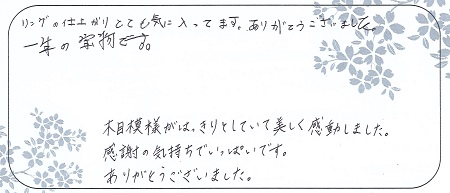 リングの仕上がりとても気に入ってます。ありがとうございました。
一生の宝物です。
木目模様がはっきりとしていて美しく感動しました。
感謝の気持ちでいっぱいです。
ありがとうございました。